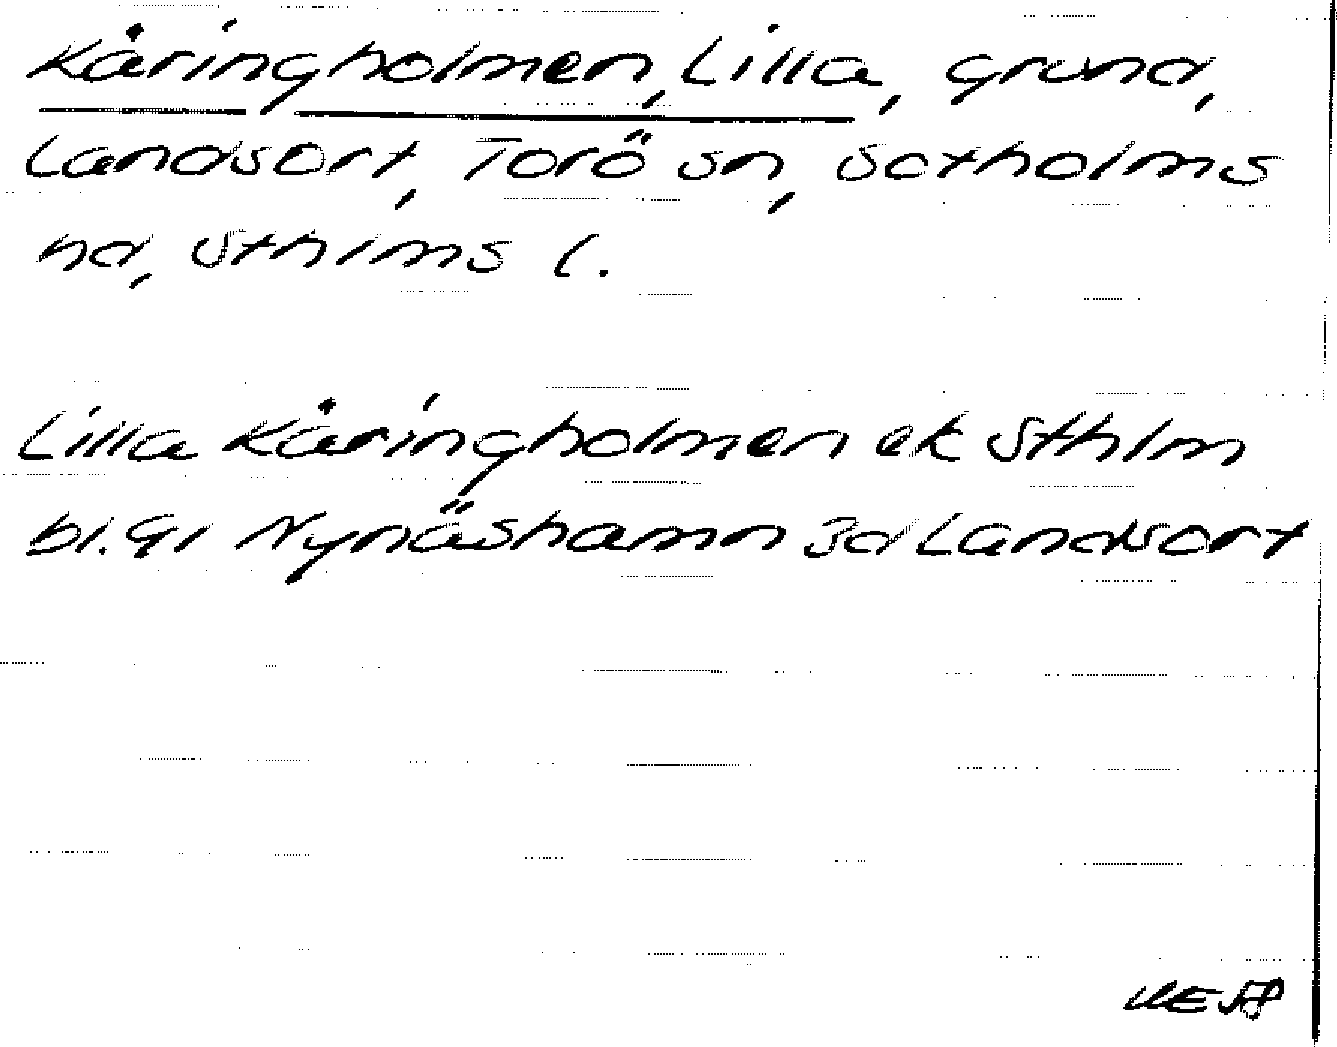 Kåringholmen, Lilla, grund,
Landsort, Torö sn, Sotholms
hd, Sthlms l.
Lilla Kåringholmen ek Sthlm
bl. 91 Nynäshamn 3d Landsort